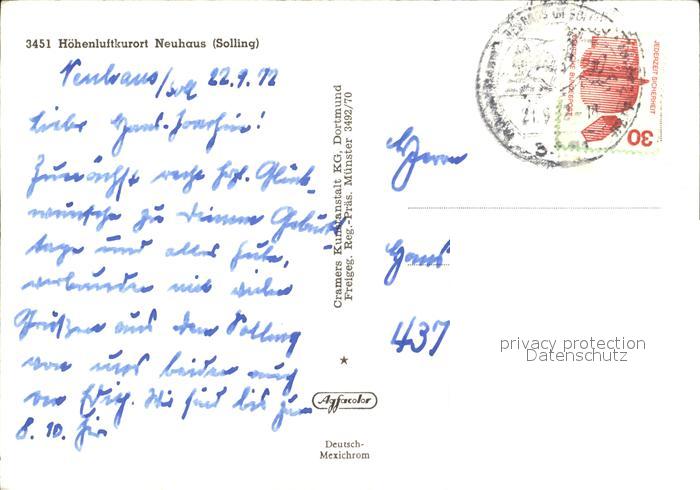 3451 Höhenluftkurort Neuhaus (Solling)
Neuhaus/Soll 22.9.72
Lieber Hans-Joachim!
Zunächst recht hzl. Glück-
wünsche zu Deinem Geburts
tage und alles Gute,
verbunden mit vielen
Grüßen aus dem Solling
von uns beiden auch
von Erich. Wir sind bis zum
8. 10. hier
Cramers Kunstanstalt KG, Dortmund
Freigeg. Reg.-Präs. Münster 3492/70
Agfacolor
Deutsch-
Mexichrom
Herrn
Hans
437
JEDERZEIT SICHERHEIT
DEUTSCHE BUNDESPOST
30
privacy protection
Datenschutz